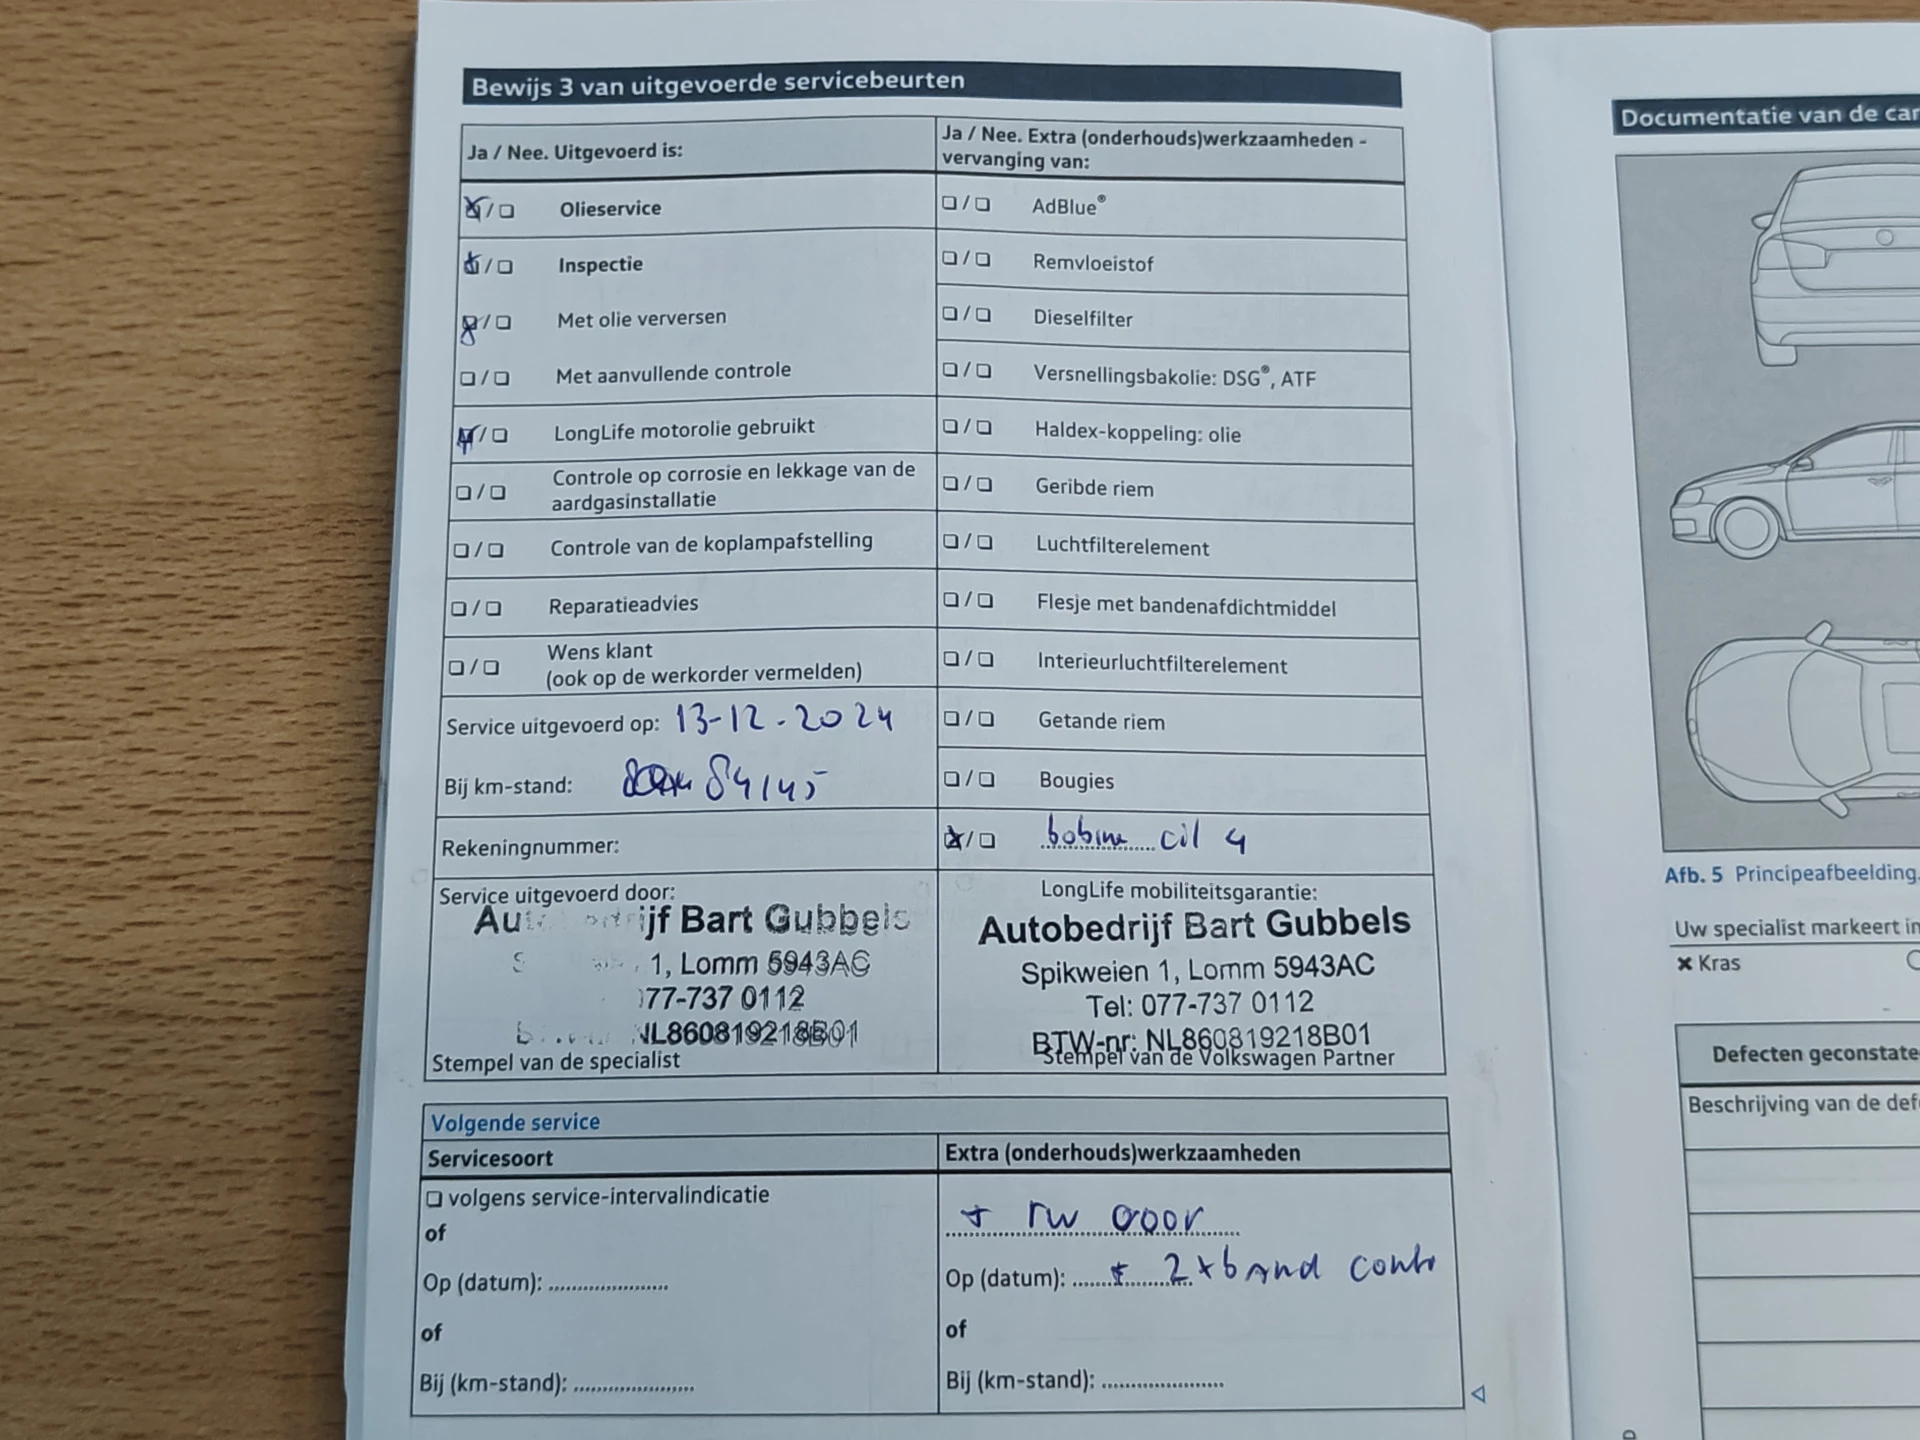 Bewijs 3 van uitgevoerde servicebeurten
Ja / Nee. Uitgevoerd is:
Olieservice
Inspectie
Met olie verversen
Met aanvullende controle
LongLife motorolie gebruikt
Controle op corrosie en lekkage van de
aardgasinstallatie
Controle van de koplampafstelling
Reparatieadvies
Wens klant
(ook op de werkorder vermelden)
Service uitgevoerd op: 13-12-2024
Bij km-stand: 84145
Rekeningnummer:
Service uitgevoerd door:
ijf Bart Gubbels
1, Lomm 5943AC
77-737 0112
NL860819218B01
Stempel van de specialist
Ja / Nee. Extra (onderhouds)werkzaamheden -
vervanging van:
AdBlue®
Remvloeistof
Dieselfilter
Versnellingsbakolie: DSG®, ATF
Haldex-koppeling: olie
Geribde riem
Luchtfilterelement
Flesje met bandenafdichtmiddel
Interieurluchtfilterelement
Getande riem
Bougies
bobine cil 4
LongLife mobiliteitsgarantie:
Autobedrijf Bart Gubbels
Spikweien 1, Lomm 5943AC
Tel: 077-737 0112
BTW-nr: NL860819218B01
Stempel van de Volkswagen Partner
Volgende service
Servicesoort
volgens service-intervalindicatie
of
Op (datum): ....................
of
Bij (km-stand): ....................
Extra (onderhouds)werkzaamheden
+ rw
Op (datum): 2x band
of
Bij (km-stand): ....................
Documentatie van de car
Afb. 5 Principeafbeelding.
Uw specialist markeert in
× Kras
Defecten geconstate
Beschrijving van de def